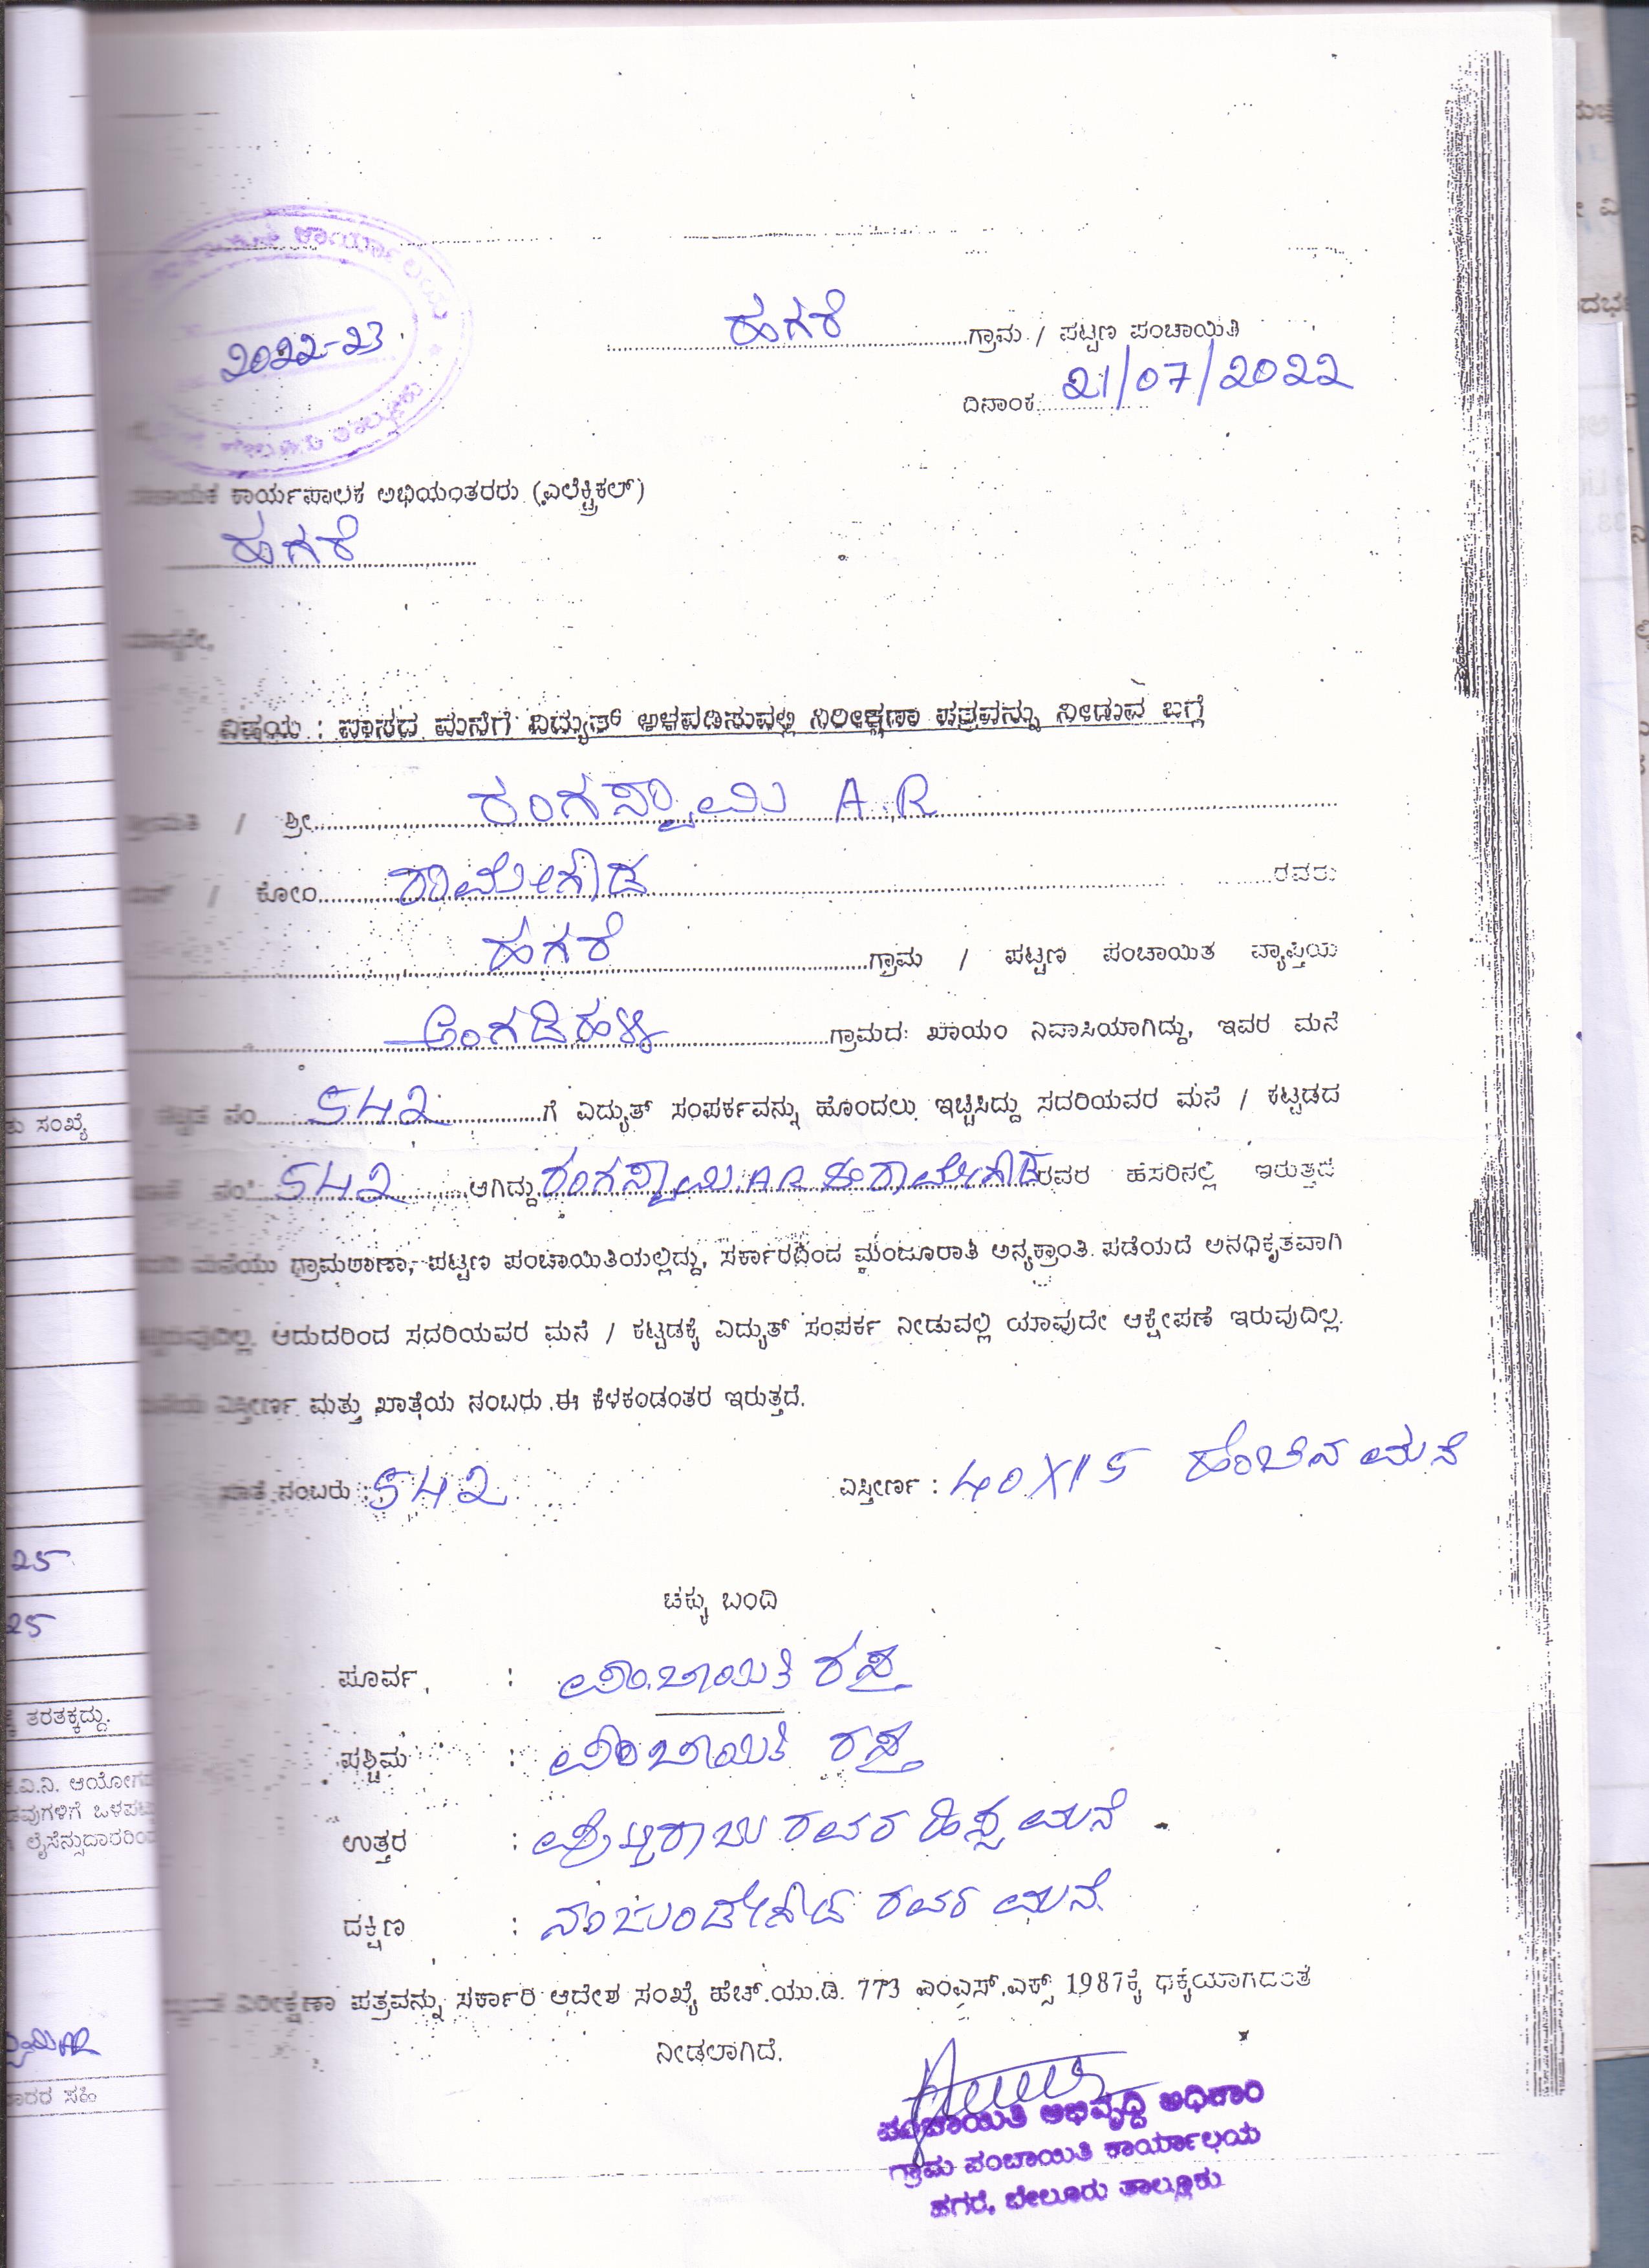 ಕಾರ್ಯಾಲಯ
2022-23
ಹಗರೆ ಗ್ರಾಮ / ಪಟ್ಟಣ ಪಂಚಾಯಿತಿ
ದಿನಾಂಕ 21/07/2022
ಸಹಾಯಕ ಕಾರ್ಯಪಾಲಕ ಅಭಿಯಂತರರು (ಎಲೆಕ್ಟ್ರಿಕಲ್)
ಹಗರೆ
ಮಾನ್ಯರೇ,
ವಿಷಯ : ವಾಸದ ಮನೆಗೆ ವಿದ್ಯುತ್ ಅಳವಡಿಸುವಲ್ಲಿ ನಿರೀಕ್ಷಣಾ ಪತ್ರವನ್ನು ನೀಡುವ ಬಗ್ಗೆ
ಶ್ರೀಮತಿ / ಶ್ರೀ ರಂಗಸ್ವಾಮಿ A.R
ಬಿನ್ / ಕೋಂ ರಾಮೇಗೌಡ ರವರು
ಹಗರೆ ಗ್ರಾಮ / ಪಟ್ಟಣ ಪಂಚಾಯಿತ ವ್ಯಾಪ್ತಿಯ
ಅಂಗಡಿಹಳ್ಳಿ ಗ್ರಾಮದ ಖಾಯಂ ನಿವಾಸಿಯಾಗಿದ್ದು, ಇವರ ಮನೆ
/ ಕಟ್ಟಡ ನಂ 542 ಗೆ ವಿದ್ಯುತ್ ಸಂಪರ್ಕವನ್ನು ಹೊಂದಲು ಇಚ್ಚಿಸಿದ್ದು ಸದರಿಯವರ ಮನೆ / ಕಟ್ಟಡದ
ನಂ 542 ಆಗಿದ್ದು ರಂಗಸ್ವಾಮಿ.A R ರಾಮೇಗೌಡ ರವರ ಹೆಸರಿನಲ್ಲಿ ಇರುತ್ತದೆ
ಮನೆಯು ಗ್ರಾಮಠಾಣಾ, ಪಟ್ಟಣ ಪಂಚಾಯಿತಿಯಲ್ಲಿದ್ದು, ಸರ್ಕಾರದಿಂದ ಮಂಜೂರಾತಿ ಅನ್ಯಕ್ರಾಂತಿ ಪಡೆಯದೆ ಅನಧಿಕೃತವಾಗಿ
ಆದುದರಿಂದ ಸದರಿಯವರ ಮನೆ / ಕಟ್ಟಡಕ್ಕೆ ವಿದ್ಯುತ್ ಸಂಪರ್ಕ ನೀಡುವಲ್ಲಿ ಯಾವುದೇ ಆಕ್ಷೇಪಣೆ ಇರುವುದಿಲ್ಲ.
ವಿಸ್ತೀರ್ಣ ಮತ್ತು ಖಾತೆಯ ನಂಬರು ಈ ಕೆಳಕಂಡಂತರ ಇರುತ್ತದೆ.
ಖಾತೆ ನಂಬರು : 542 ವಿಸ್ತೀರ್ಣ : 40X15 ಹೆಂಚಿನ ಮನೆ
ಚಕ್ಕು ಬಂದಿ
ಪೂರ್ವ : ಪಂಚಾಯಿತಿ ರಸ್ತೆ
ಪಶ್ಚಿಮ : ಪಂಚಾಯಿತಿ ರಸ್ತೆ
ಉತ್ತರ : ರವರ ಹಿಸ್ಸೆ ಮನೆ
ದಕ್ಷಿಣ : ನಂಜುಂಡೇಗೌಡ ರವರ ಮನೆ
ನಿರೀಕ್ಷಣಾ ಪತ್ರವನ್ನು ಸರ್ಕಾರಿ ಆದೇಶ ಸಂಖ್ಯೆ ಹೆಚ್.ಯು.ಡಿ. 773 ಎಂಎಸ್.ಎಕ್ಸ್ 1987ಕ್ಕೆ ಧಕ್ಕೆಯಾಗದಂತೆ
ನೀಡಲಾಗಿದೆ.
ಪಂಚಾಯಿತಿ ಅಭಿವೃದ್ಧಿ ಅಧಿಕಾರಿ
ಗ್ರಾಮ ಪಂಚಾಯಿತಿ ಕಾರ್ಯಾಲಯ
ಹಗರೆ, ಬೇಲೂರು ತಾಲ್ಲೂಕು
ಸಂಖ್ಯೆ
25
25
ತರತಕ್ಕದ್ದು.